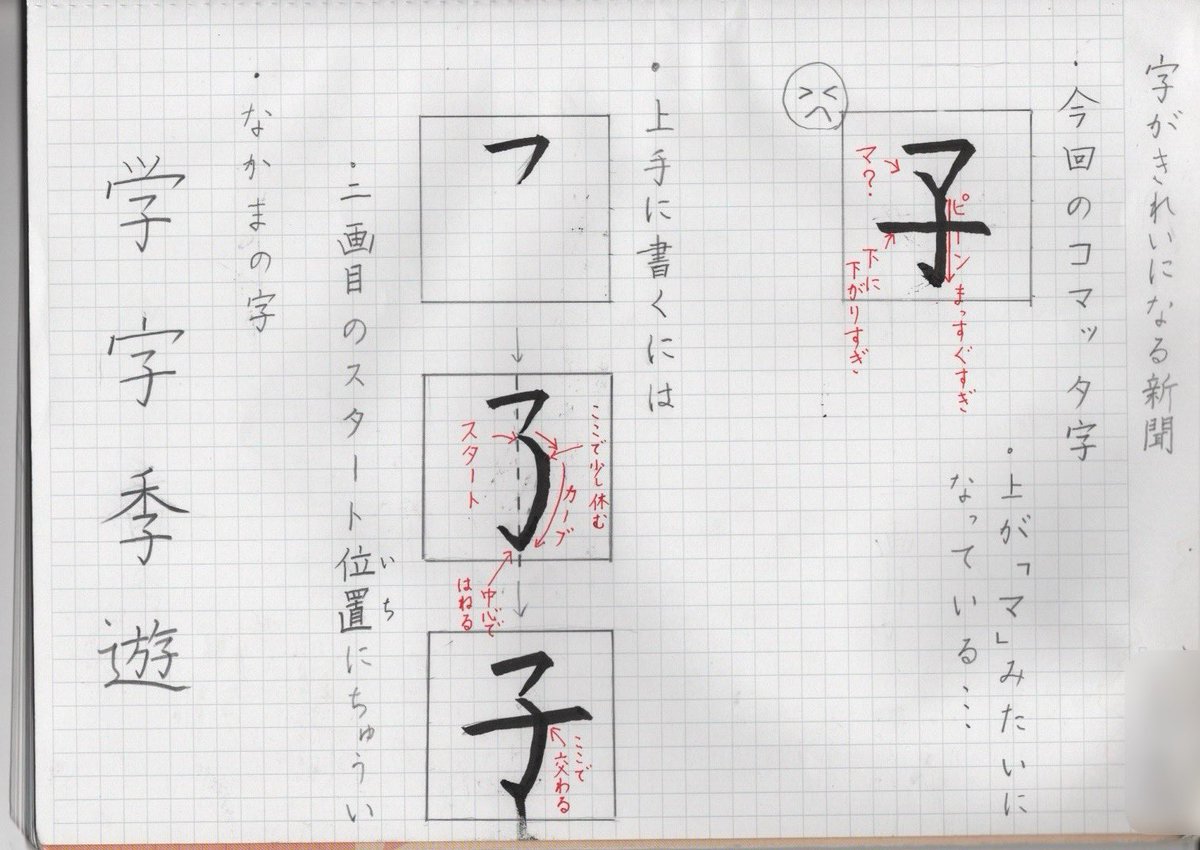 字がきれいになる新聞
・今回のコマッタ字
子
マ?
ピーン
まっすぐすぎ
下に
下がりすぎ
・上が「マ」みたいに
なっている…
・上手に書くには
ここで少し休む
カーブ
スタート
中心で
はねる
子
ここで
交わる
・二画目のスタート位置にちゅうい
いち
・なかまの字
学字季遊